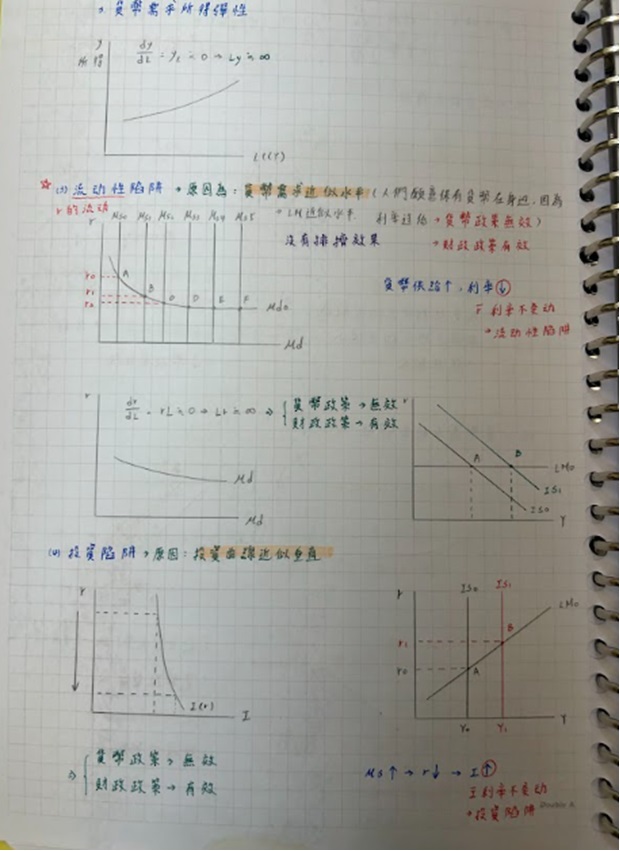 貨幣需求所得彈性
y
所得
dy/dL = yL ≒ 0 → Ly ≒ ∞
L(y)
☆ (3) 流动性陷阱 → 原因為: 貨幣需求近似水平 (人們願意保有貨幣在身邊, 因為
r 的流动
→ LM近似水平
→ 貨幣政策無效)
沒有排擠效果
→ 財政政策有效
r
r0
r1
r2
A
B
D
E
F
Md0
Md
貨幣供給↑, 利率↓
r̄ 利率不变动
→ 流动性陷阱
r
dr/dL = rL ≒ 0 → Lr ≒ ∞ ⇒ { 貨幣政策 → 無效
財政政策 → 有效
Md
Md
r
A
B
LM0
IS1
IS0
Y
(4) 投資陷阱 → 原因: 投資曲線近似垂直
r
I(r)
I
r
IS0
IS1
LM0
r1
r0
B
A
Y0
Y1
Y
⇒ { 貨幣政策 → 無效
財政政策 → 有效
Ms↑ → r↓ → I↑
Ī 利率不变动
→ 投資陷阱
Double A